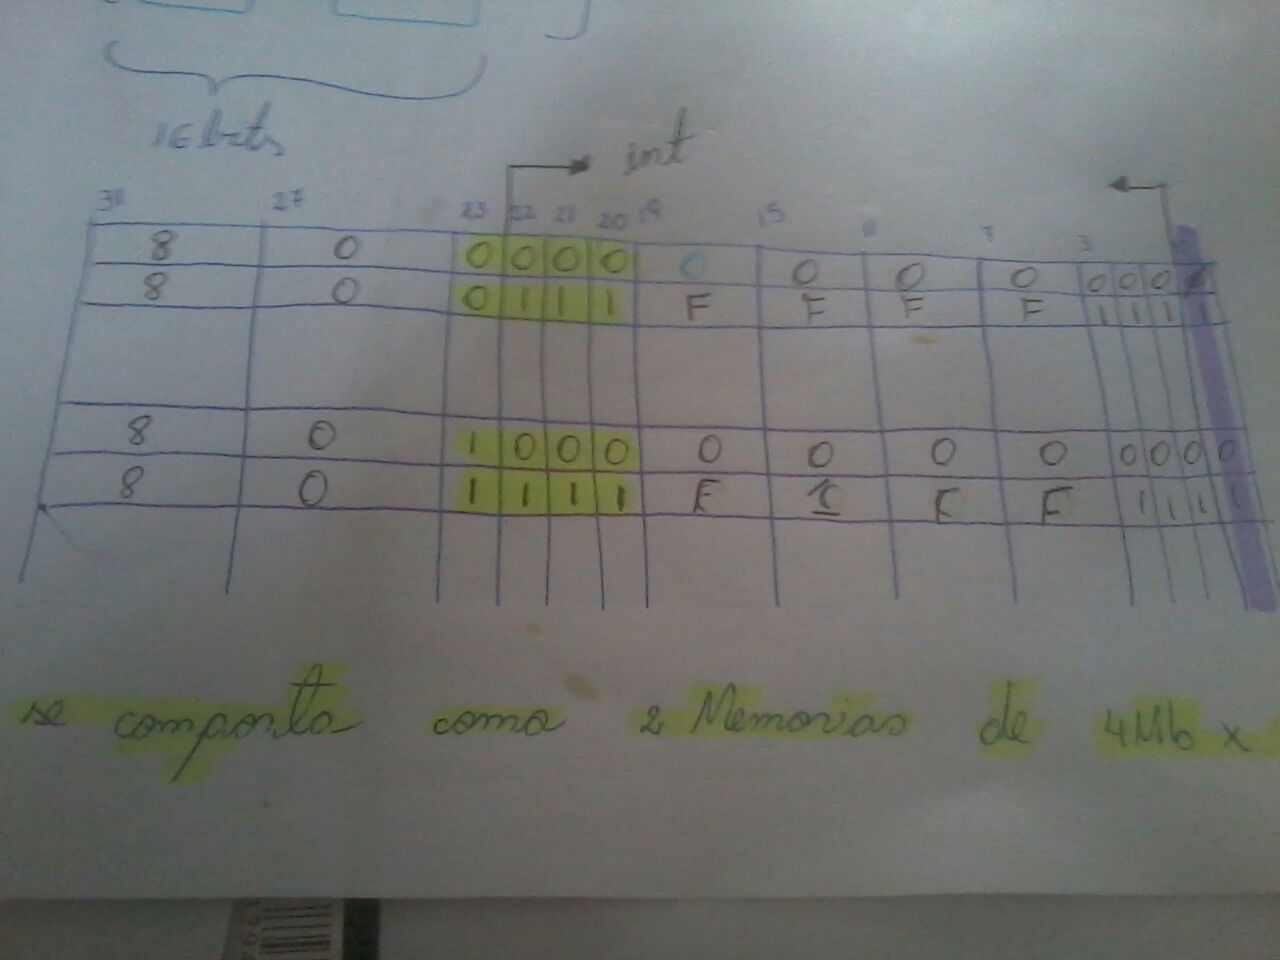 16 bits
int
31 27 23 22 21 20 19 15 11 7 3
8 0 0 0 0 0 0 0 0 0 0 0 0
8 0 0 1 1 1 F F F F 1 1 1 1
8 0 1 0 0 0 0 0 0 0 0 0 0 0
8 0 1 1 1 1 F F F F 1 1 1 1
se comporta como 2 Memorias de 4Mb x